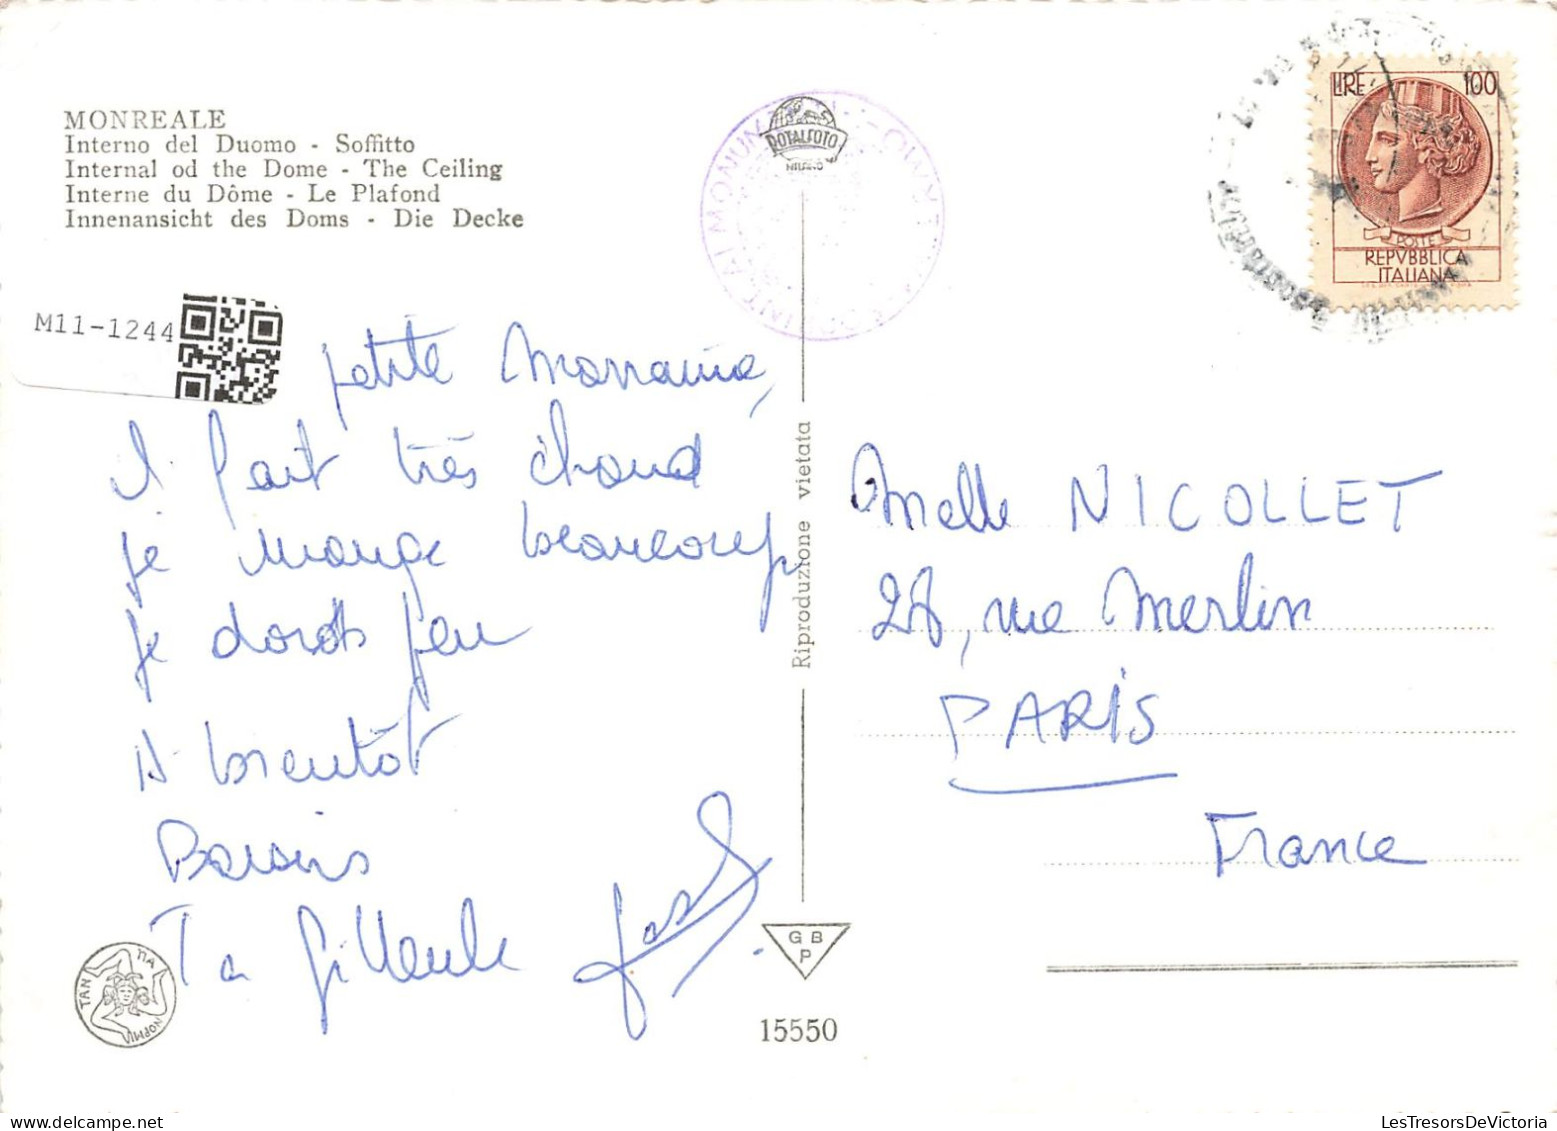 MONREALE
Interno del Duomo - Soffitto
Internal od the Dome - The Ceiling
Interne du Dôme - Le Plafond
Innenansicht des Doms - Die Decke
M11-1244
ROTALFOTO
MILANO
LIRE 100
POSTE
REPVBBLICA
ITALIANA
petite Marraine,
Il fait très chaud
je mange beaucoup
je dors peu
A bientôt
Baisers
Ta filleule
Riproduzione vietata
Melle NICOLLET
28, rue Merlin
PARIS
France
G B
P
15550
LesTresorsDeVictoria